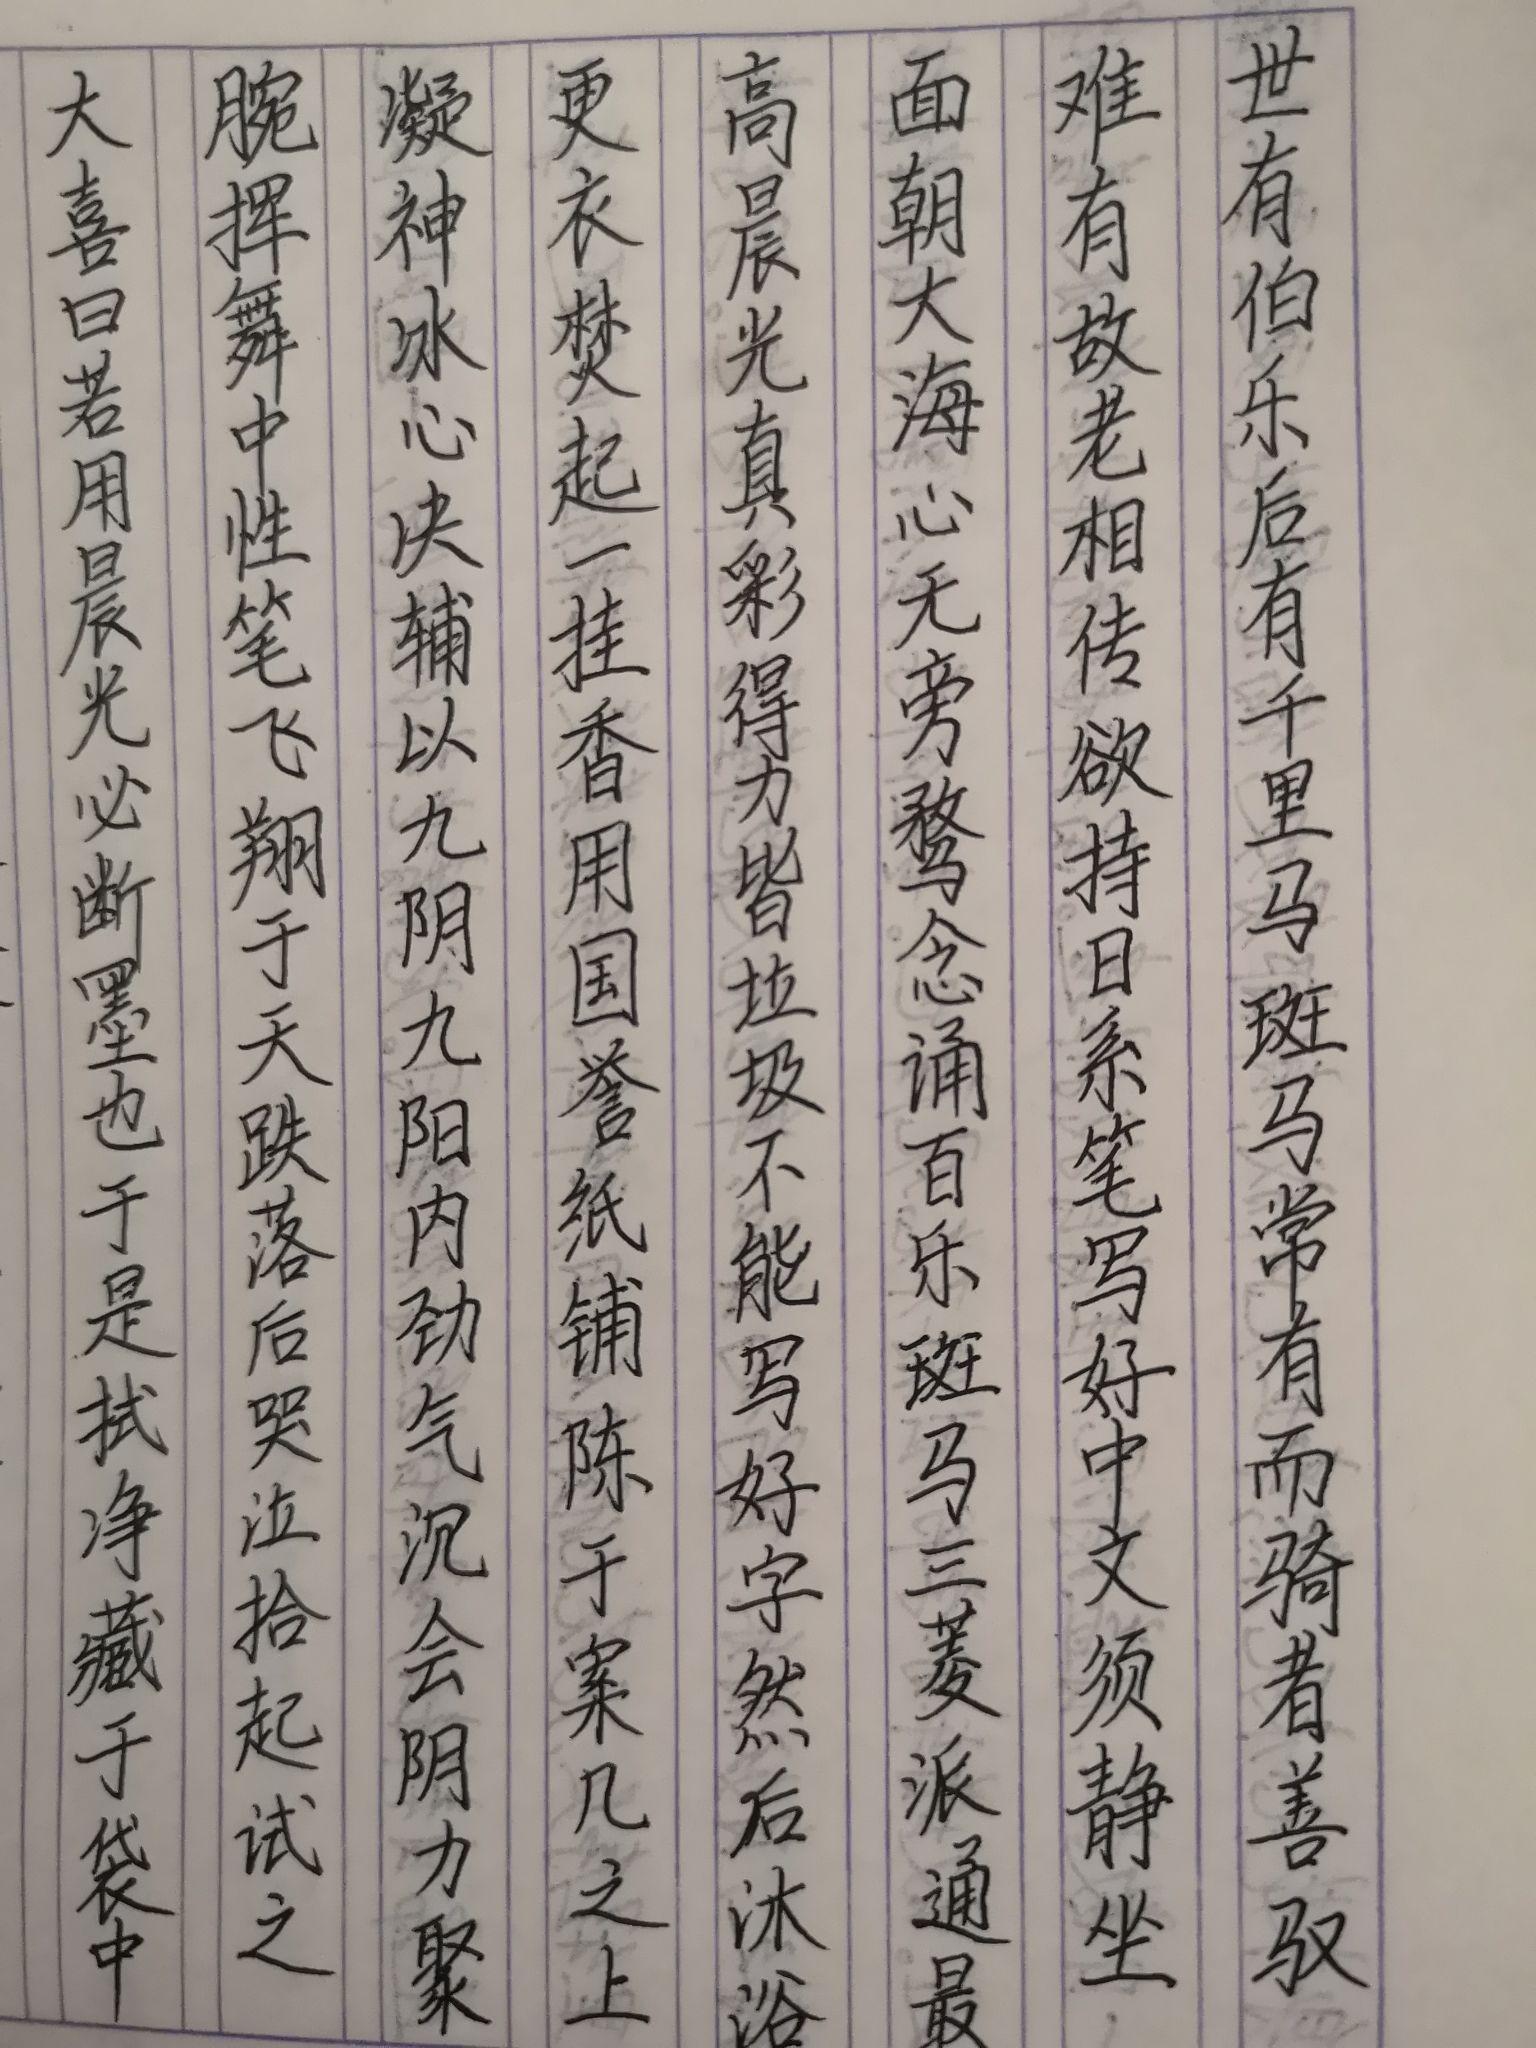 世有伯乐后有千里马斑马常有而骑者善驭
难有故老相传欲持日系笔写好中文须静坐
面朝大海心无旁鹜念诵百乐斑马三菱派通最
高晨光真彩得力皆垃圾不能写好字然后沐浴
更衣焚起一挂香用国誉纸铺陈于案几之上
凝神冰心决辅以九阴九阳内劲气沉会阴力聚
腕挥舞中性笔飞翔于天跌落后哭泣拾起试之
大喜曰若用晨光必断墨也于是拭净藏于袋中